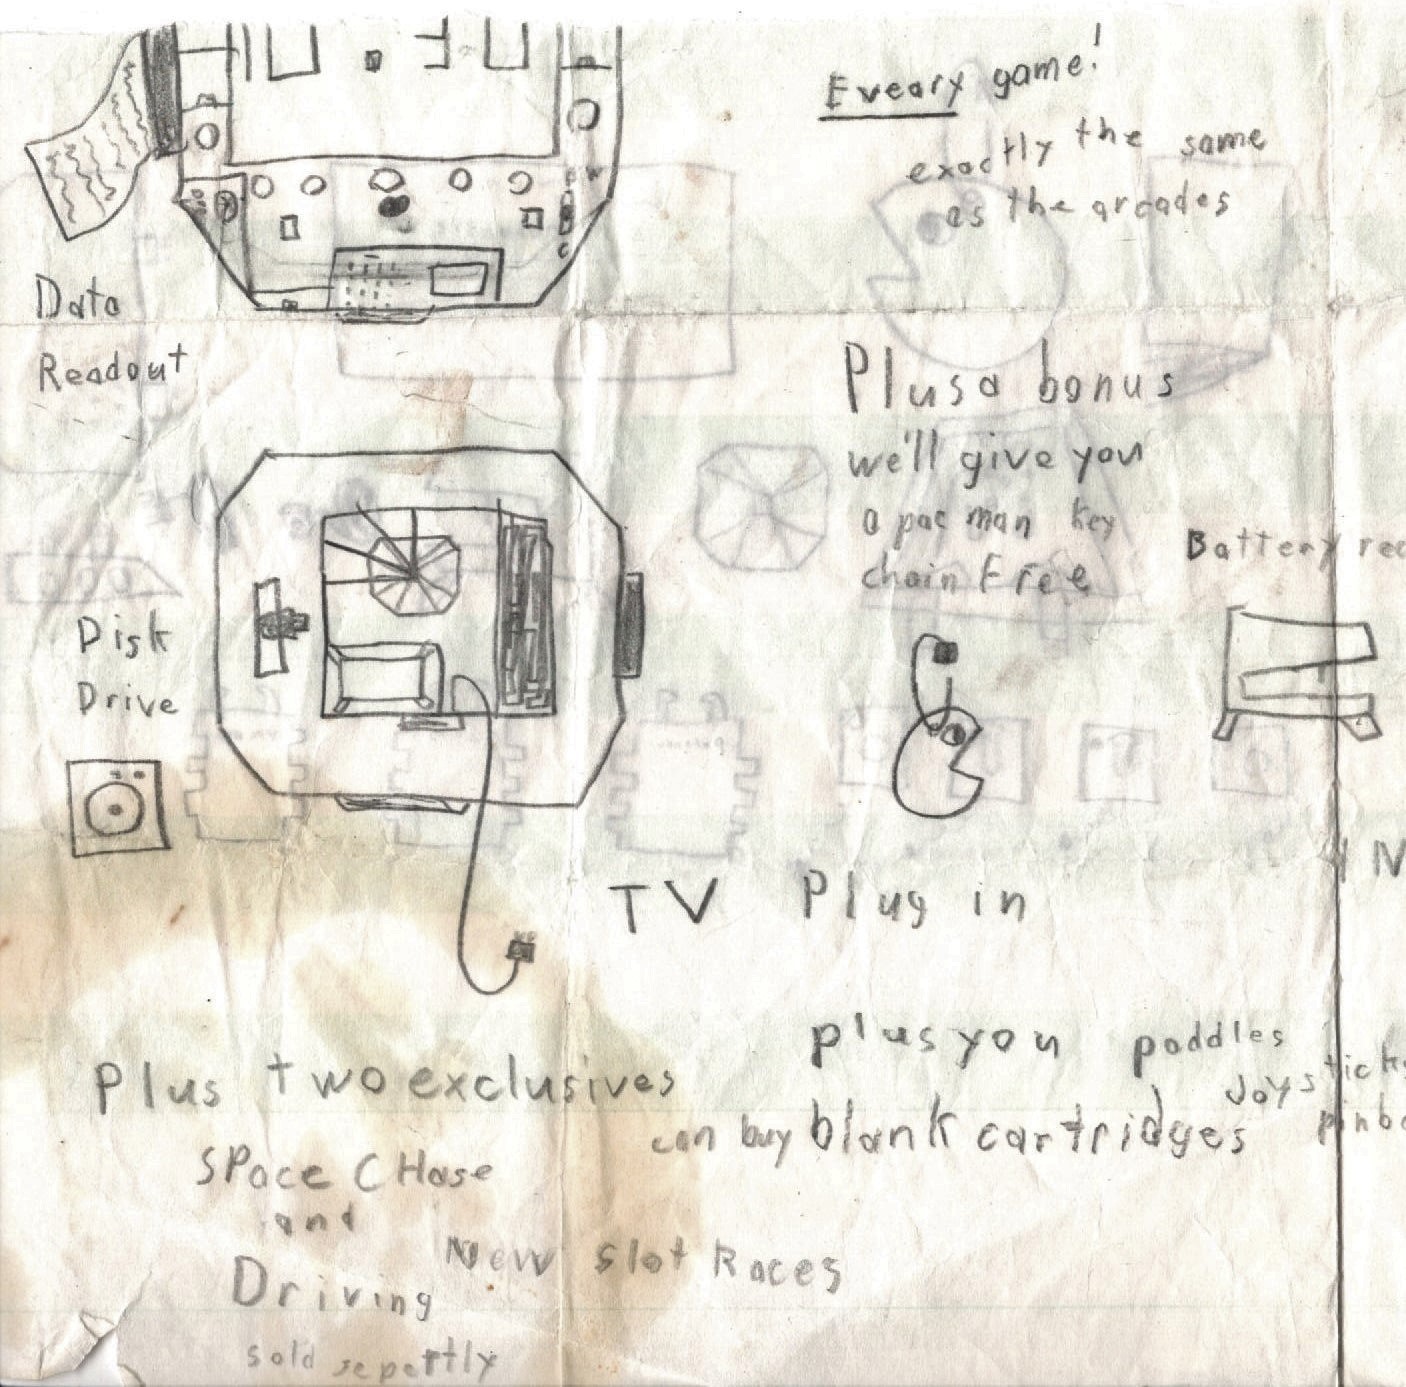 Eveary game!
exactly the same
as the arcades
Data
Readout
Plus a bonus
we'll give you
a pac man key
chain Free
Battery rec
Disk
Drive
TV Plug in
IN
Plus two exclusives
SPace CHase
and
Driving
New Slot Races
sold sepertly
plus you
can buy blank cartridges
paddles
Joysticks
pinba